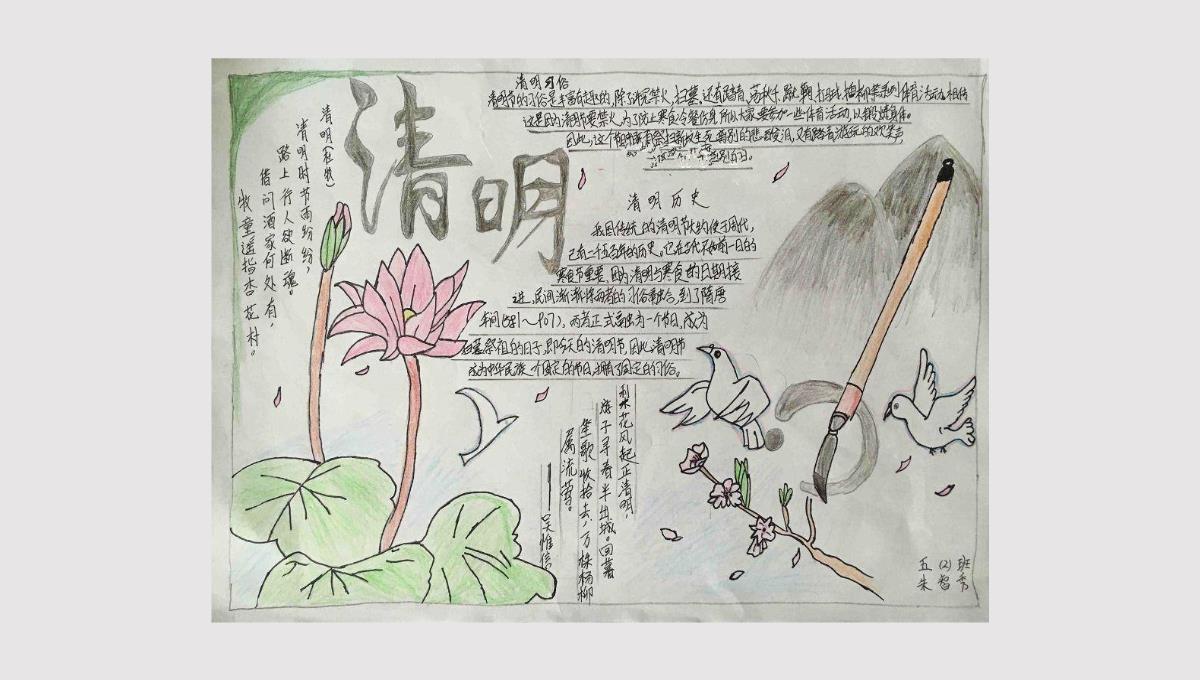 清明
清明(杜牧)
清明时节雨纷纷,
路上行人欲断魂。
借问酒家何处有,
牧童遥指杏花村。
清明习俗
清明节的习俗是丰富有趣的,除了讲究禁火、扫墓,还有踏青、荡秋千、蹴鞠、打马球、插柳等系列体育活动。相传
这是因为清明节要禁火,为了防止寒食冷餐伤身,所以大家要参加一些体育活动,以锻炼身体。
因此,这个节日中既有祭扫新坟生死离别的悲酸泪,又有踏青游玩的欢笑声,
清明历史
我国传统的清明节大约使于周代,
已有二千五百年的历史。
寒食节重要,因为清明与寒食的日期接
近,民间渐渐将两者的习俗融合,到了隋唐
年间(581~907),两者正式融为一个节日,成为
扫墓祭祖的日子,即今天的清明节。因此清明节
成为中华民族一个固定的节日,拥有了固定的习俗。
花风起正清明,
游子寻春半出城。日暮
笙歌收拾去,万株杨柳
属流莺。
——吴惟信
五(2)班
朱智秀